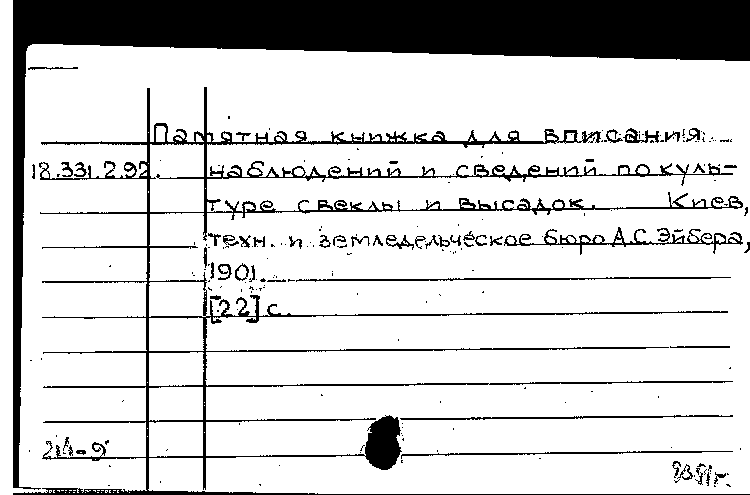 Памятная книжка для вписания
18.331.2.92. наблюдений и сведений по куль-
туре свеклы и высадок. Киев,
техн. и земледельческое бюро А.С. Эйбера,
1901.
[22] с.
214-9